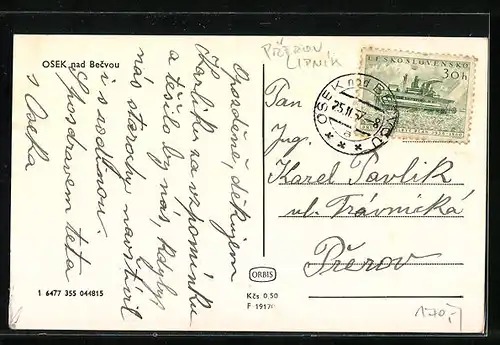 OSEK nad Bečvou
PŘEROV
LIPNÍK
ČESKOSLOVENSKO
30h
OSEK nad BEČVOU
25.II.57-8
a
Opožděně, děkujem
Karlíku za vzpomínku
a těšilo by nás, kdybys
nás starochy navštívil
i s rodinou.
S pozdravem teta
s Oseka
Pan
Jng.
Karel Pavlík
ul. Trávnická
Přerov
ORBIS
1 6477 355 044815
Kčs 0,50
F 19176
170,-